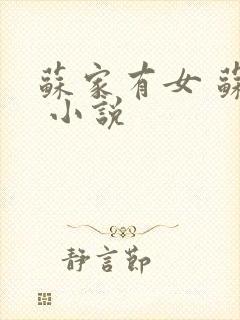 蘇家有女 蘇
小說
靜言節